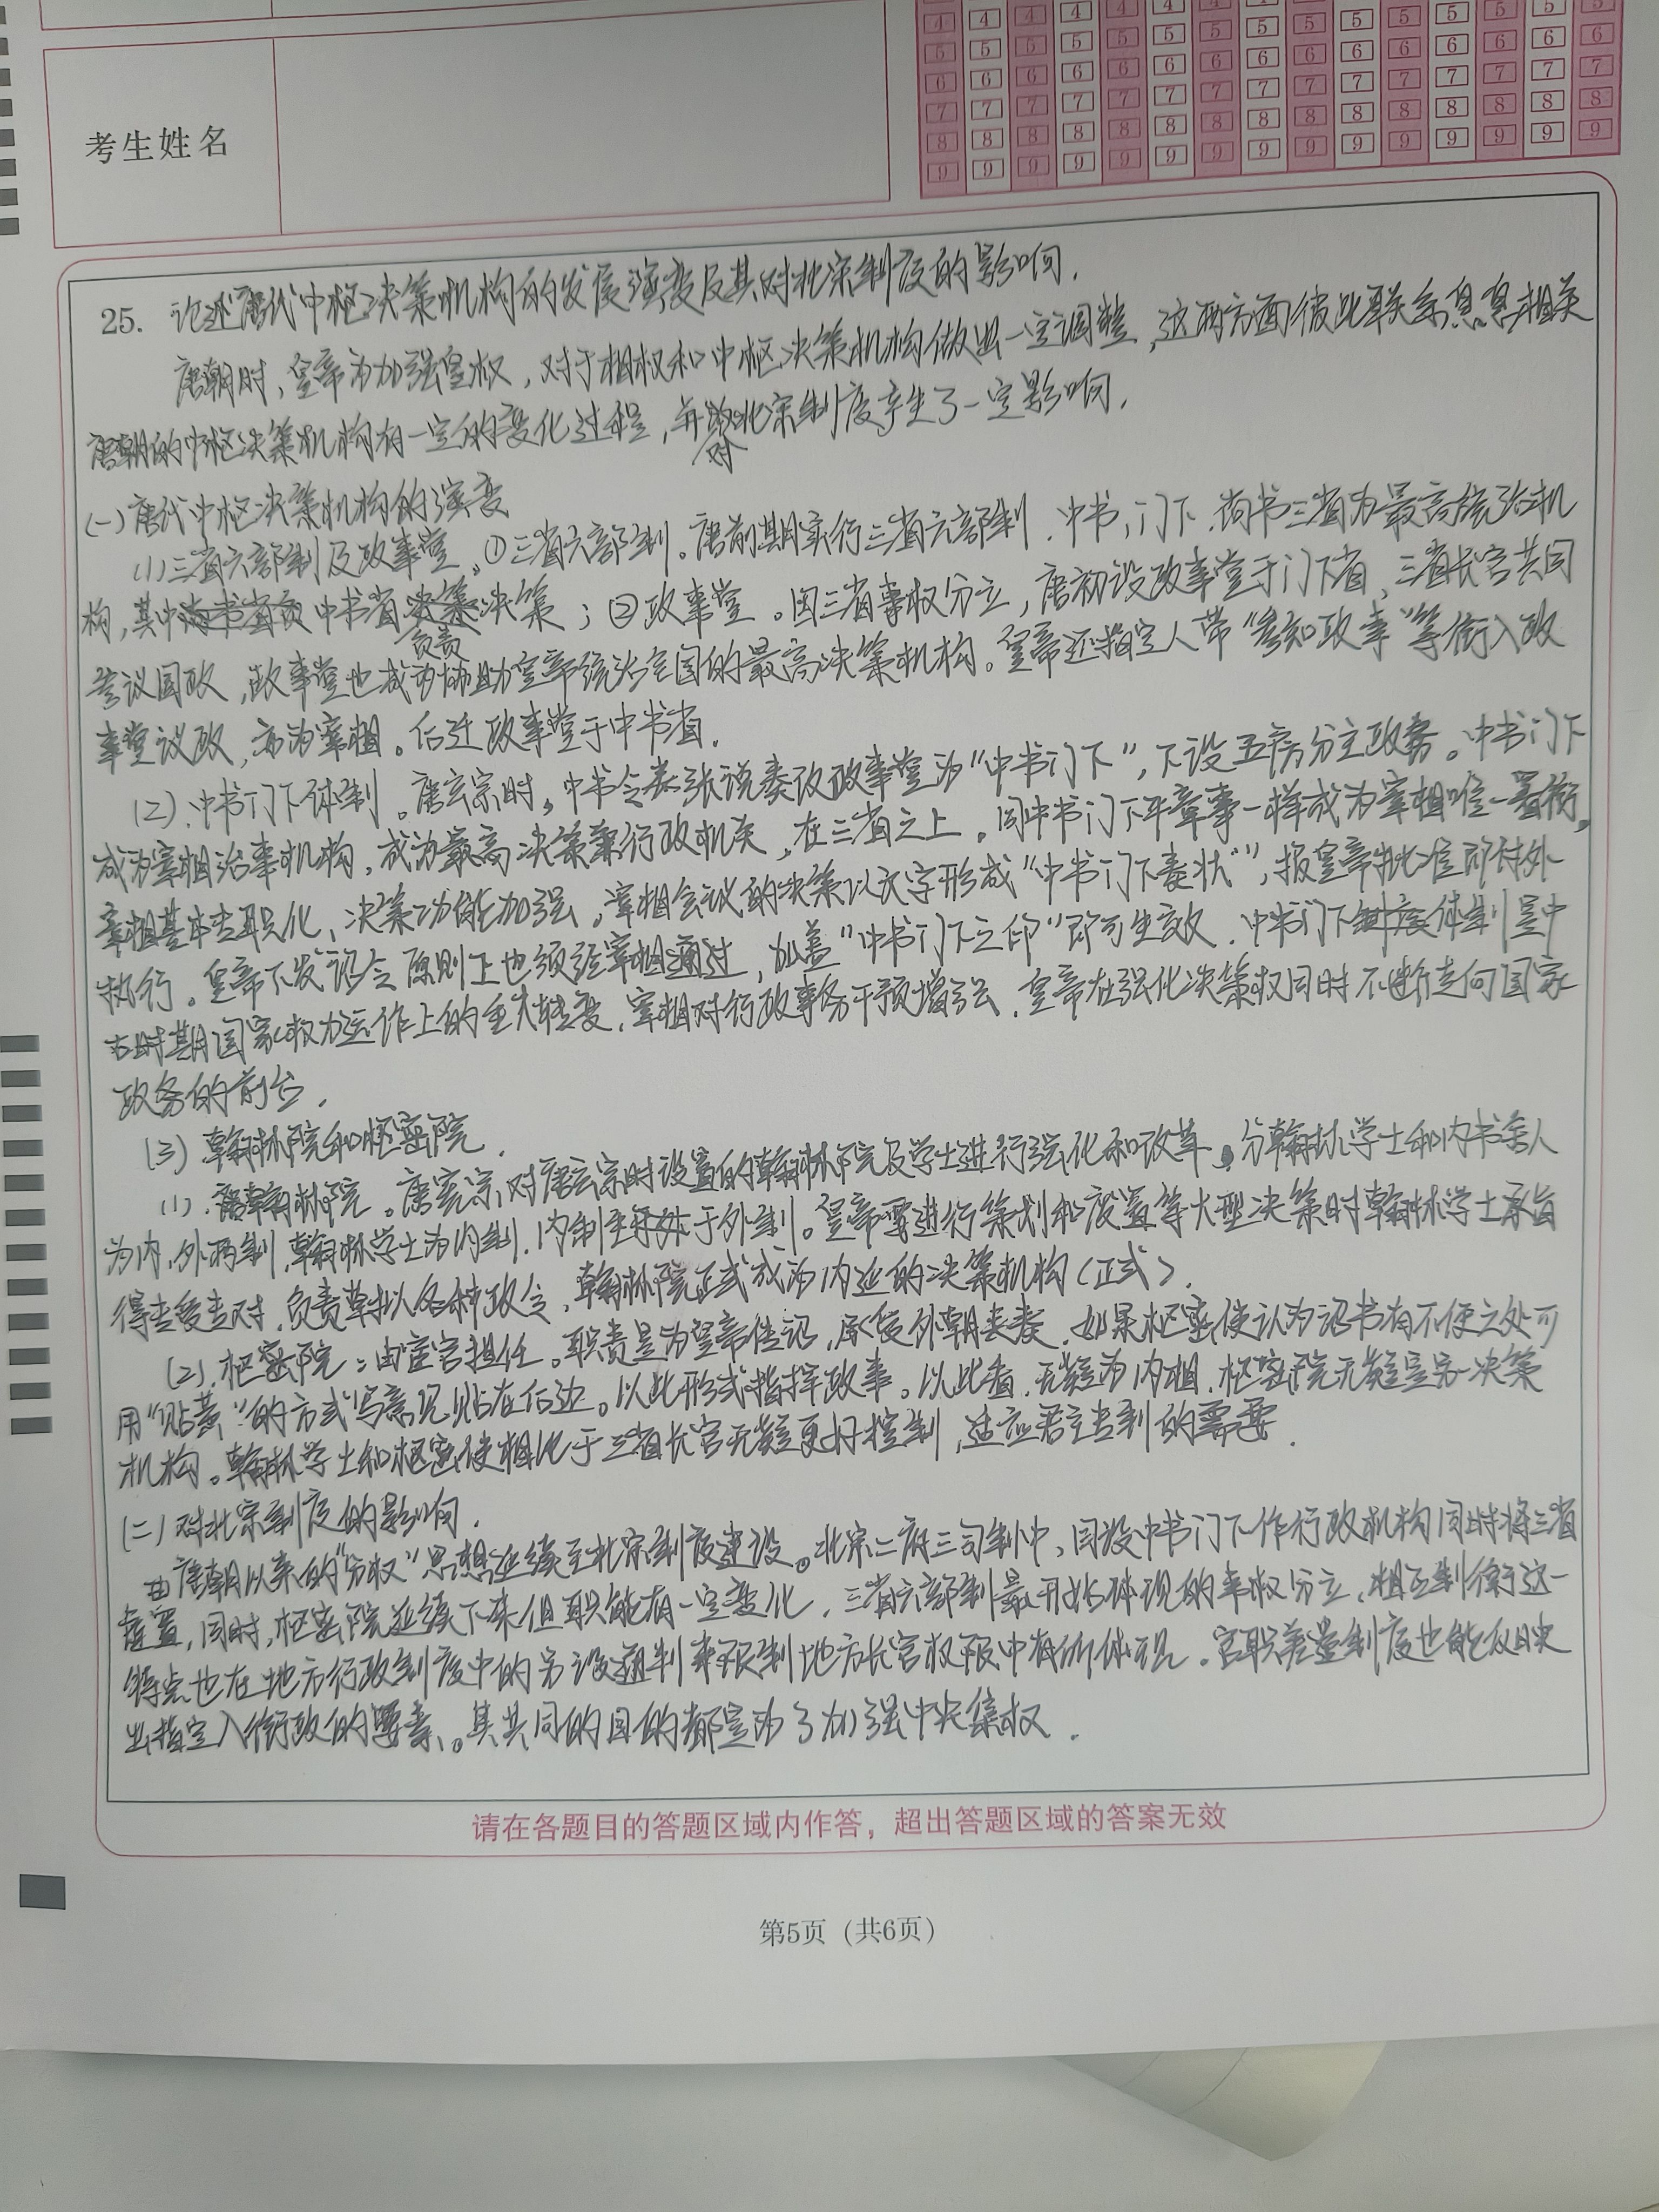 4 4 4 4 4 4 4 4 5 5 5 5 5 5 5
5 5 5 5 5 5 5 5 5 6 6 6 6 6 6
6 6 6 6 6 6 6 6 6 7 7 7 7 7 7
7 7 7 7 7 7 7 8 8 8 8 8 8 8
8 8 8 8 8 8 8 9 9 9 9 9 9 9
9 9 9 9 9 9 9 9
考生姓名
25. 论述唐代中枢决策机构的发展演变及其对北宋制度的影响.
唐朝时,皇帝为加强皇权,对于相权和中枢决策机构做出一定调整,这两方面彼此联系息息相关
唐朝的中枢决策机构有一定的变化过程,并对北宋制度产生了一定影响.
(一)唐代中枢决策机构的演变
(1)三省六部制及政事堂。①三省六部制。唐前期实行三省六部制.中书,门下.尚书三省为最高统治机
构,其中中书省负责决策;②政事堂。因三省事权分立,唐初设政事堂于门下省,三省长官共同
参议国政,政事堂也成为协助皇帝统治全国的最高决策机构。皇帝还指定人带“参知政事”等衔入政
事堂议政,亦为宰相。后迁政事堂于中书省.
(2).中书门下体制。唐玄宗时,中书令张说奏改政事堂为“中书门下”,下设五房分主政务。中书门下
成为宰相治事机构,成为最高决策兼行政机关,在三省之上。同中书门下平章事一样成为宰相唯一署衔,
宰相基本专职化、决策功能加强。宰相会议的决策以文字形成“中书门下奏状”,报皇帝批准即对外
执行。皇帝下发诏令原则上也须经宰相通过,加盖“中书门下之印”即可生效.中书门下体制是中
古时期国家权力运作上的重大转变.宰相对行政事务干预增强.皇帝在强化决策权同时不断走向国家
政务的前台.
(3)翰林院和枢密院.
(1).翰林院。唐宪宗对唐玄宗时设置的翰林院及学士进行强化和改革,分翰林学士和内书舍人
为内、外两制,翰林学士为内制.内制于外制。皇帝要进行策划和废置等大型决策时翰林学士承旨
得专受专对.负责草拟各种政令,翰林院正式成为内廷的决策机构(正式).
(2).枢密院:由宦官担任。职责是为皇帝传诏,承受外朝表奏.如果枢密使认为诏书有不便之处可
用“贴黄”的方式写意见贴在后边。以此形式指挥政事。以此看.无疑为内相.枢密院无疑是另一决策
机构。翰林学士和枢密使相比于三省长官无疑更好控制,适应君主专制的需要.
(二)对北宋制度的影响.
唐朝以来的“分权”思想延续至北宋制度建设。北宋二府三司制中,因设中书门下作行政机构同时将三省
虚置,同时,枢密院延续下来但职能有一定变化.三省六部制最开始体现的事权分立、相互制衡这一
特点也在地方行政制度中的另设通判来限制地方长官权限中有所体现.官职差遣制度也能反映
出指定入衔行政的要素。其共同的目的都是为了加强中央集权.
请在各题目的答题区域内作答,超出答题区域的答案无效
第5页(共6页)